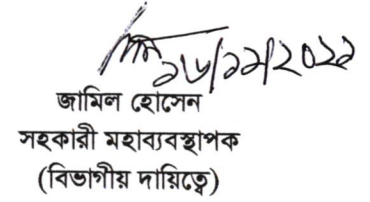 ১৬/১১/২০২১
জামিল হোসেন
সহকারী মহাব্যবস্থাপক
(বিভাগীয় দায়িত্বে)